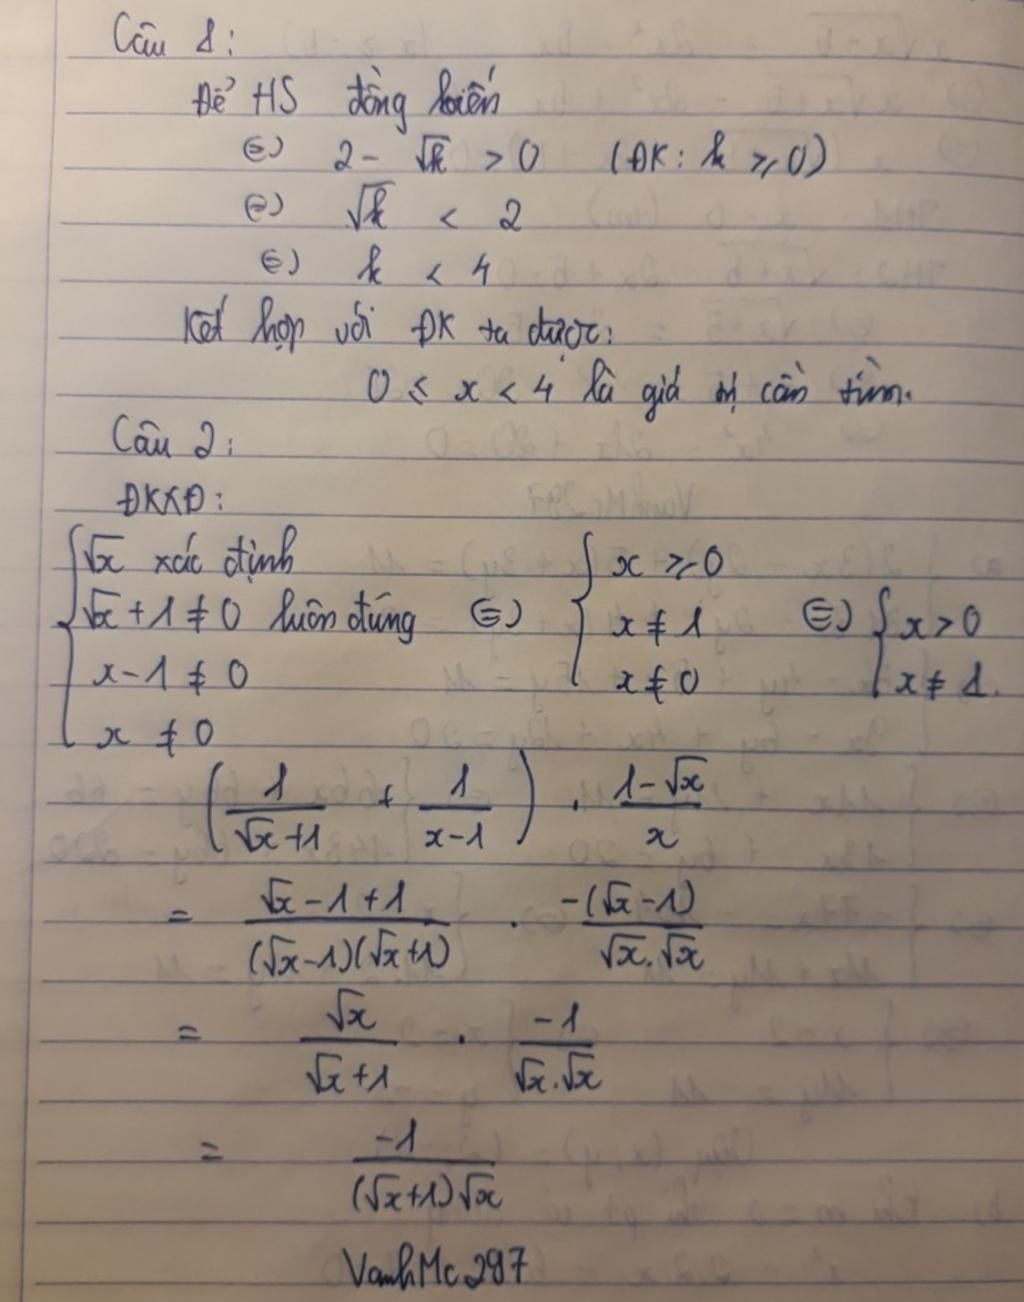 Câu 1:
Để HS đồng biến
⇔ 2 - √k > 0 (ĐK: k ≥ 0)
⇔ √k < 2
⇔ k < 4
Kết hợp với ĐK ta được:
0 ≤ x < 4 là giá trị cần tìm.
Câu 2:
ĐKXĐ:
{ √x xác định
√x + 1 ≠ 0 luôn đúng
x - 1 ≠ 0
x ≠ 0
⇔ { x ≥ 0
x ≠ 1
x ≠ 0
⇔ { x > 0
x ≠ 1.
(1/(√x+1) + 1/(x-1)) . (1-√x)/x
= (√x - 1 + 1)/((√x-1)(√x+1)) . -(√x-1)/(√x.√x)
= √x/(√x+1) . -1/(√x.√x)
= -1/((√x+1)√x)
VanhMc297